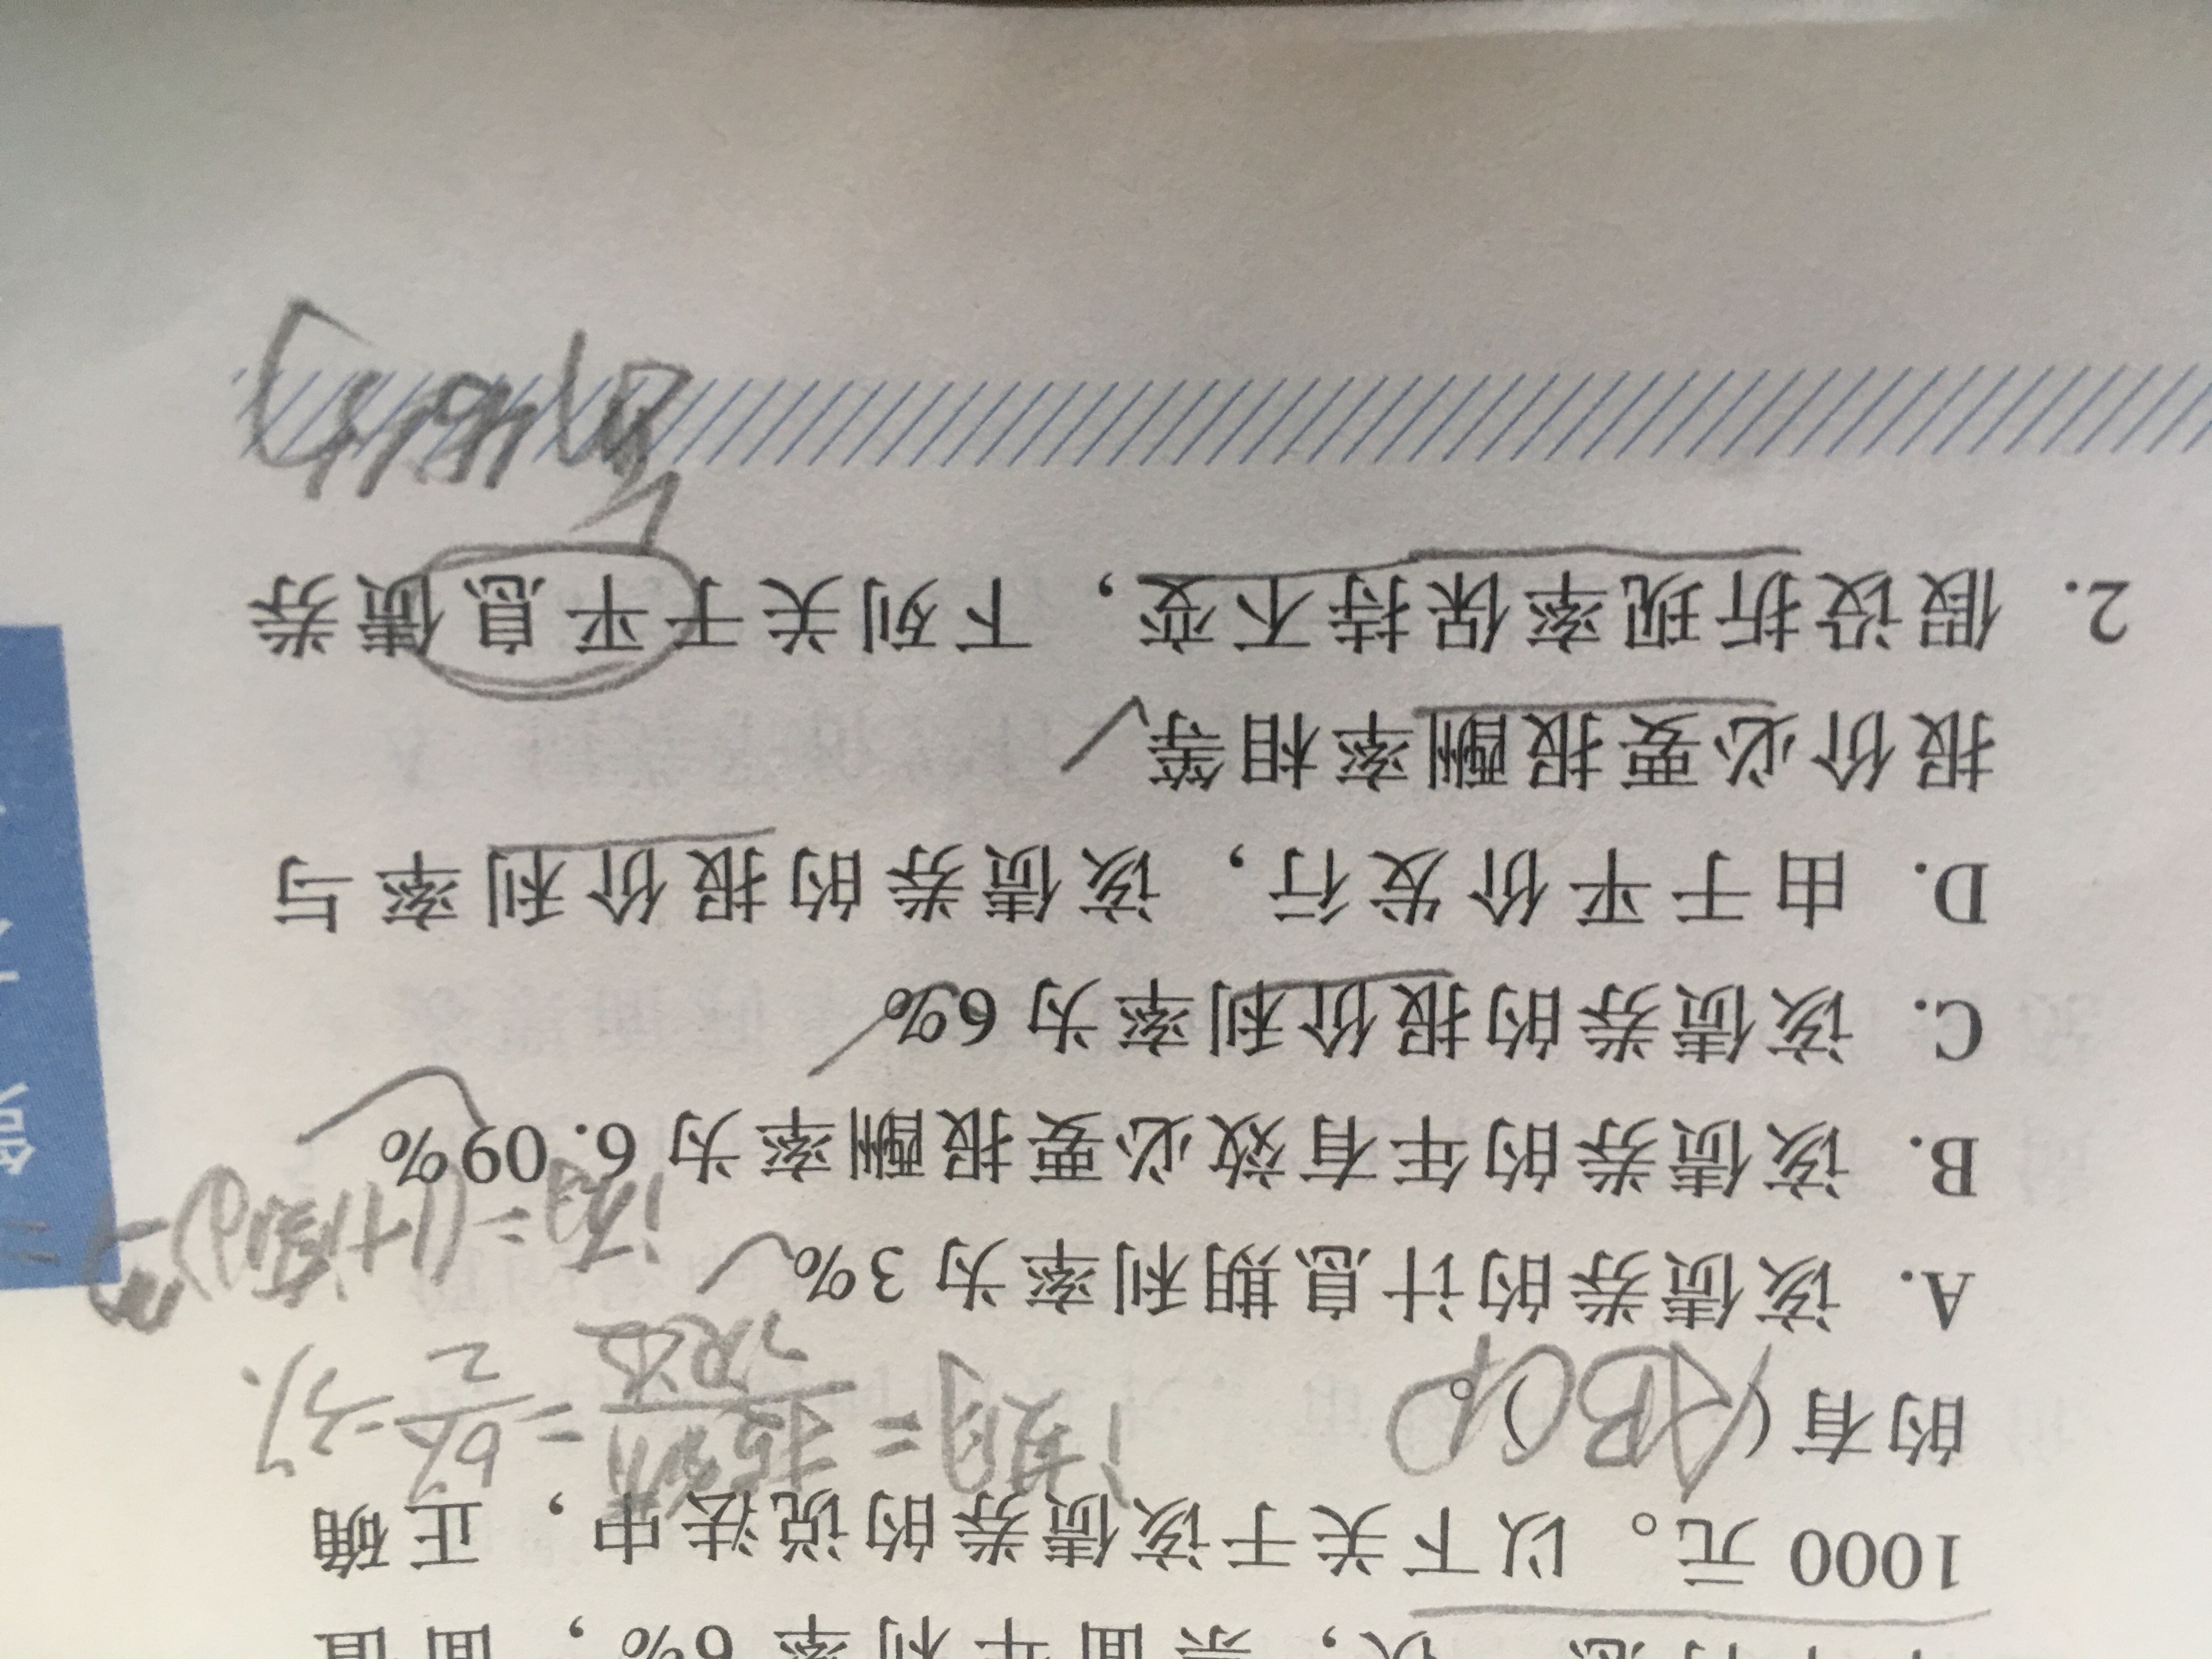 票面年利率 6%，面值
1000 元。以下关于该债券的说法中，正确
的有（ABCD）。
i期 = 报价利率/次数 = 6%/2 = 3%
A. 该债券的计息期利率为 3%
B. 该债券的年有效必要报酬率为 6.09%
C. 该债券的报价利率为 6%
D. 由于平价发行，该债券的报价利率与
报价必要报酬率相等
2. 假设折现率保持不变，下列关于平息债券